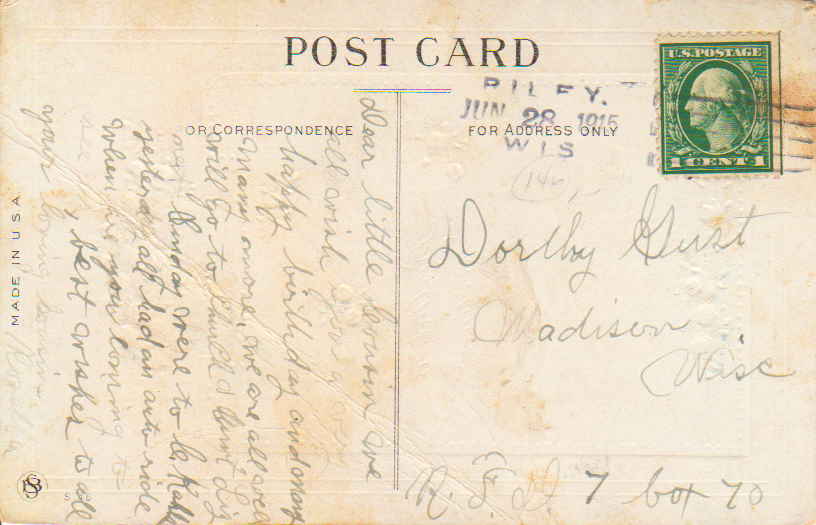 POST CARD
U.S. POSTAGE
1 CENT 1
RILEY.
JUN 28 1915
WIS
OR CORRESPONDENCE
FOR ADDRESS ONLY
146
Dorthy Gust
Madison
Wisc
R. F. D. 7 box 70
Dear little Cousin we
all wish you a very
happy birthday and many
many more, we are all well
will go to church
Sunday were to
yesterday all had an auto ride
When are you coming to
see
best wishes to all
yours loving cousin
MADE IN U S A